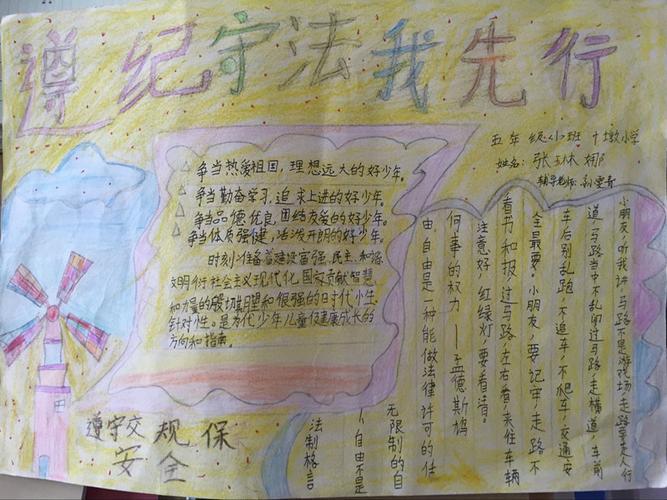 遵纪守法我先行
五年级 班 十墩小学
姓名:张琳娜
辅导老师:孙
争当热爱祖国,理想远大的好少年。
争当勤奋学习,追求上进的好少年。
争当品德优良,团结友爱的好少年。
争当体质强健,活泼开朗的好少年。
时刻准备着建设富强、民主、和谐
文明行社会主义现代化国家贡献智慧
和力量的殷切期望和很强的时代性
针对性。是为代少年儿童促健康成长的
方向和指南。
小朋友,听我讲,马路不是游戏场,走路要走人行
道,马路当中不乱闯过马路,走横道,车前
车后别乱跑,不追车,不爬车,交通安
全最要,小朋友,要记牢,走路不
看书和报,过马路,左右看,来往车辆
注意好,红绿灯,要看清。
法制格言
自由不是
无限制的自
由,自由是一种能做法律许可的任
何事的权力——孟德斯鸠
遵守交规保
安全